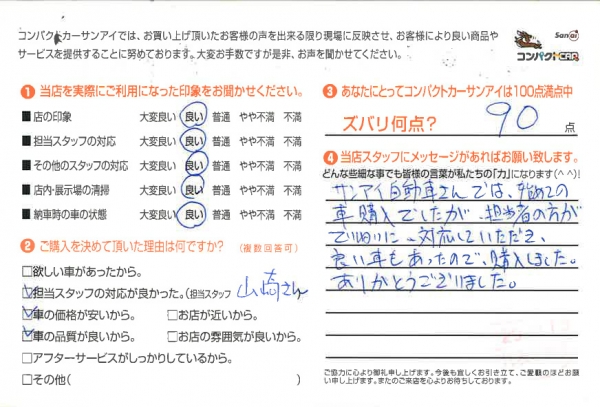 コンパクトカーサンアイでは、お買い上げ頂いたお客様の声を出来る限り現場に反映させ、お客様により良い商品や
サービスを提供することに努めております。大変お手数ですが是非、お声を聞かせてください。
Sanai
コンパクトCAR
❶ 当店を実際にご利用になった印象をお聞かせください。
■ 店の印象 大変良い 良い 普通 やや不満 不満
■ 担当スタッフの対応 大変良い 良い 普通 やや不満 不満
■ その他のスタッフの対応 大変良い 良い 普通 やや不満 不満
■ 店内・展示場の清掃 大変良い 良い 普通 やや不満 不満
■ 納車時の車の状態 大変良い 良い 普通 やや不満 不満
❷ ご購入を決めて頂いた理由は何ですか? (複数回答可)
□欲しい車があったから。
☑担当スタッフの対応が良かった。(担当スタッフ 山崎さん
☑車の価格が安いから。 □お店が近いから。
☑車の品質が良いから。 □お店の雰囲気が良いから。
□アフターサービスがしっかりしているから。
□その他( )
❸ あなたにとってコンパクトカーサンアイは100点満点中
ズバリ何点? 90 点
❹ 当店スタッフにメッセージがあればお願い致します。
どんな些細な事でも皆様の言葉が私たちの「力」になります(^ ^)!
サンアイ自動車さんでは、始めての
車購入でしたが、担当者の方が
ていねいに、対応していただき、
良い車もあったので、購入しました。
ありがとうございました。
ご協力に心より御礼申し上げます。今後も宜しくお引き立て、ご愛顧のほどお願
い申し上げます。またのご来店を心よりお待ちしております。